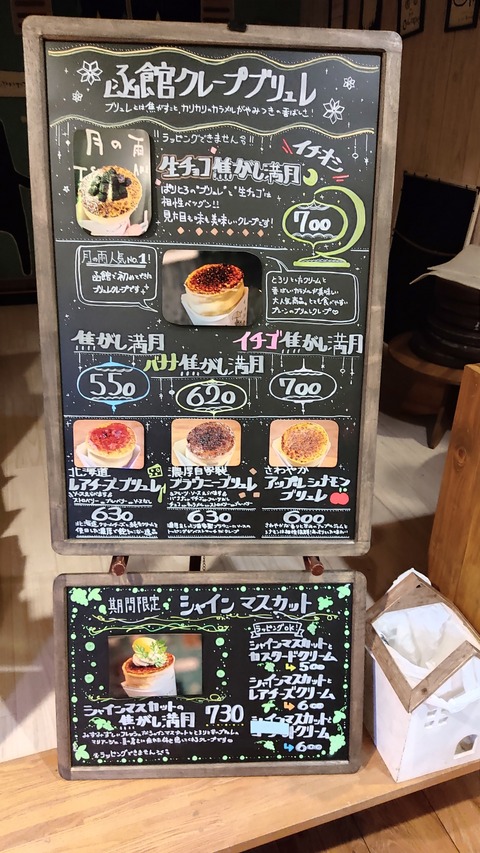 函館クレープブリュレ
ブリュレとは焦がすっと、カリカリのカラメルがやみつきの香ばしさ!
!!ラッピングできません!!
イチオシ
生チョコ焦がし満月
ブリュレと生チョコは
相性バツグン!!
見た目も味も美味しいクレープです!
700
月の雨人気NO.1!
函館で初めてできた
ブリュレクレープです。
とろりいたクリームと
香ばしいカラメルが美味しい
大人気商品。とても食べやすい
プレーンのブリュレクレープ♡
焦がし満月
バナナ焦がし満月
イチゴ焦がし満月
550
620
700
北海道
レアチーズブリュレ
630
濃厚自家製
ブラウニーブリュレ
630
さわやか
アップルシナモン
ブリュレ
600
期間限定 シャインマスカット
シャインマスカットの
焦がし満月 730
※ラッピングできません
ラッピングOK!
シャインマスカットと
カスタードクリーム
500
シャインマスカットと
レアチーズクリーム
600
シャインマスカットと
クリーム
600